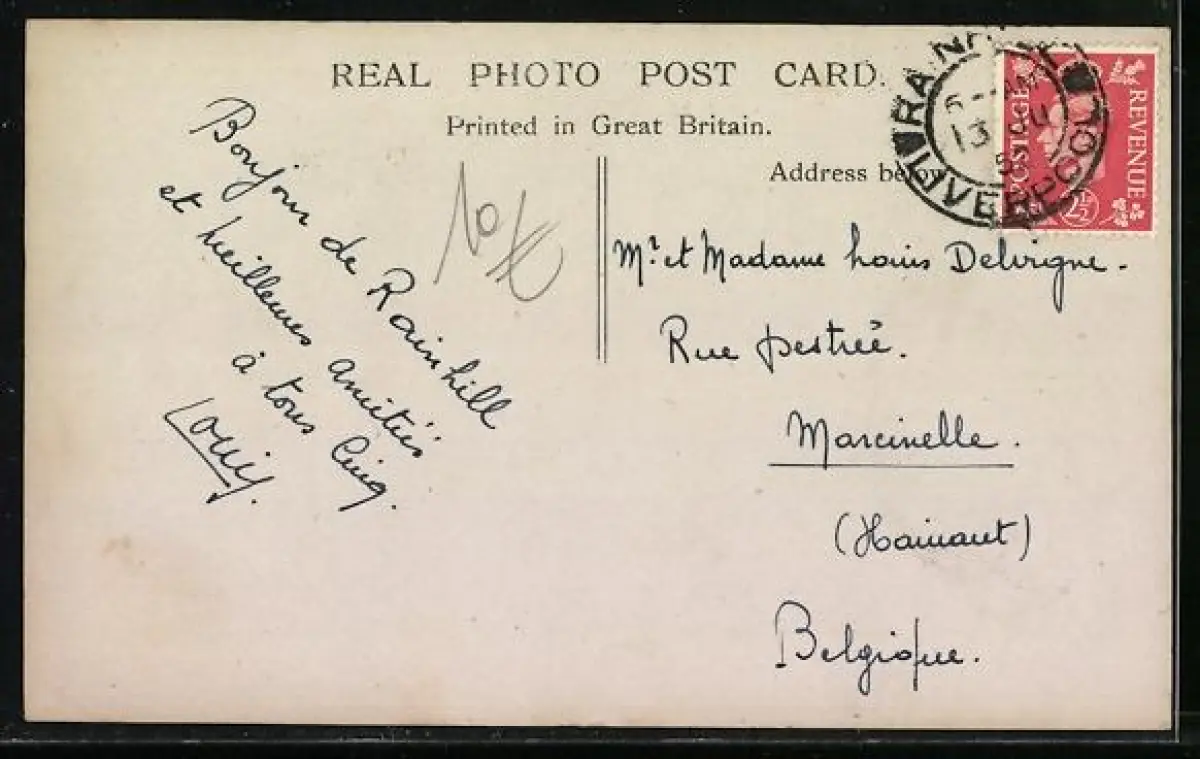 REAL PHOTO POST CARD.
Printed in Great Britain.
Address below
Bonjour de Rainhill
et meilleures amitiés
à tous cinq.
Louis.
Mr. et Madame Louis Delvigne.
Rue Destrée.
Marcinelle.
(Hainaut)
Belgique.
POSTAGE
REVENUE
2½
RAINHILL
LIVERPOOL
13